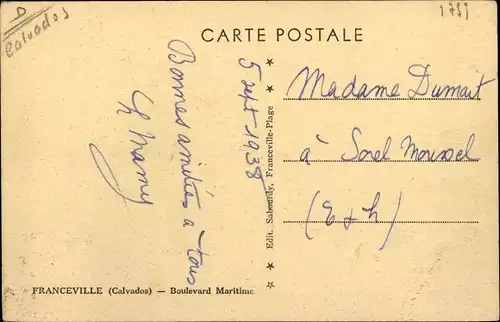 D
Calvados
1739
CARTE POSTALE
5 sept 1938
Bonnes amitiés à tous
Edit. Sabourdy, Franceville-Plage
Madame Dumait
à Sorel Moussel
(E & L)
FRANCEVILLE (Calvados) — Boulevard Maritime